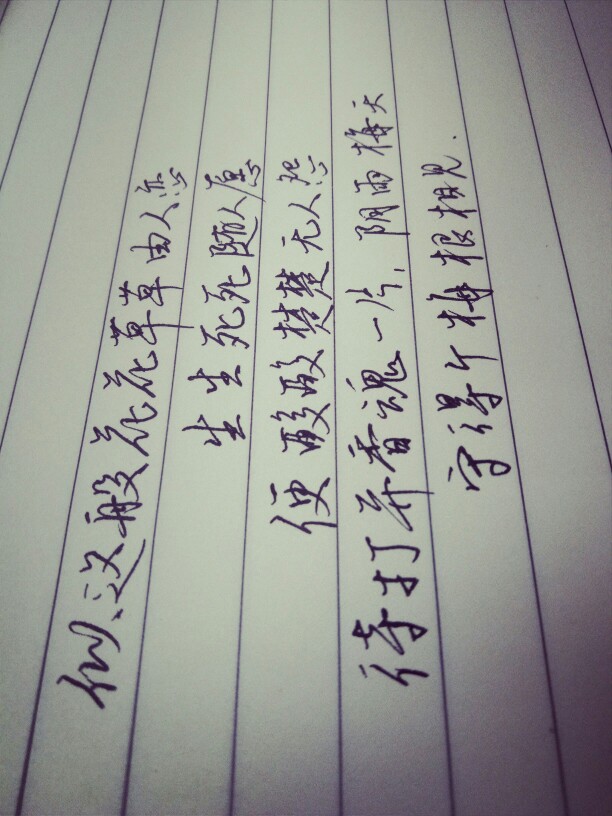 似这般花花草草由人恋
生生死死随人愿
便酸酸楚楚无人怨
待打并香魂一片，阴雨梅天
守得个梅根相见.